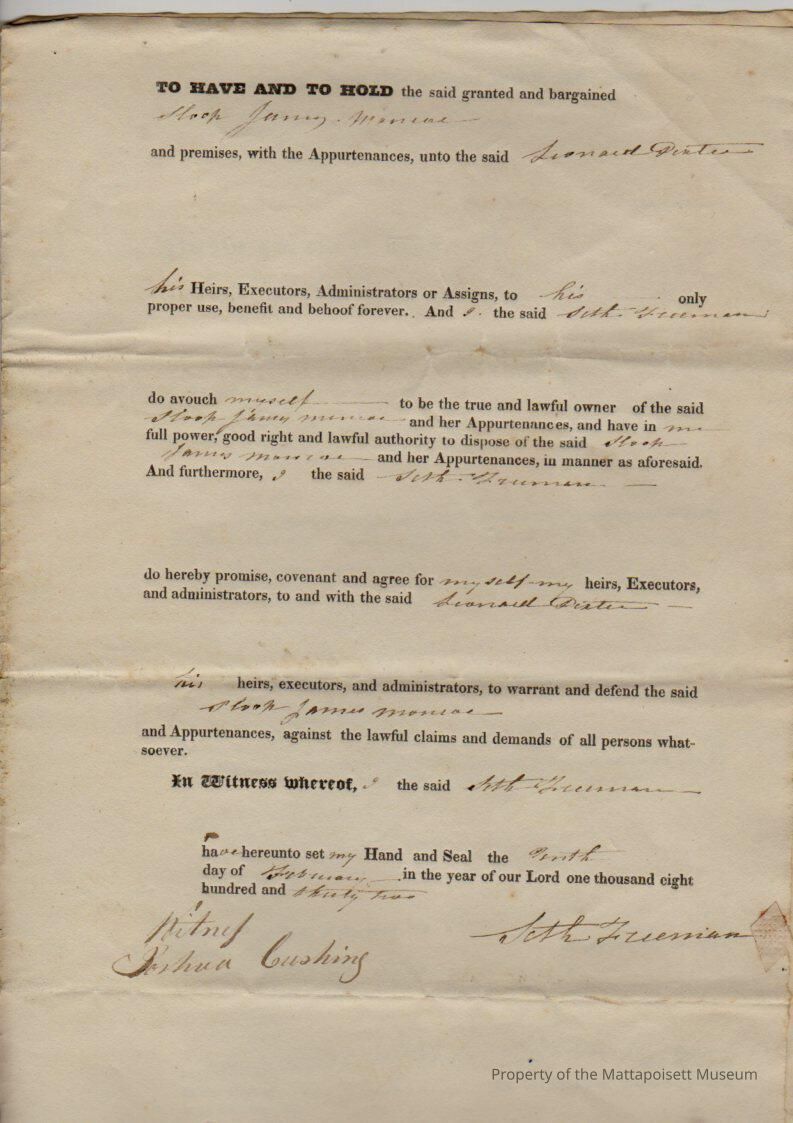 TO HAVE AND TO HOLD the said granted and bargained
Sloop James Monroe
and premises, with the Appurtenances, unto the said Leonard Dexter
his Heirs, Executors, Administrators or Assigns, to his only
proper use, benefit and behoof forever. And I the said Seth Freeman
do avouch myself to be the true and lawful owner of the said
Sloop James monroe and her Appurtenances, and have in me
full power, good right and lawful authority to dispose of the said Sloop
James monroe and her Appurtenances, in manner as aforesaid.
And furthermore, I the said Seth Freeman
do hereby promise, covenant and agree for myself my heirs, Executors,
and administrators, to and with the said Leonard Dexter
his heirs, executors, and administrators, to warrant and defend the said
Sloop James monroe
and Appurtenances, against the lawful claims and demands of all persons what-
soever.
In Witness whereof, I the said Seth Freeman
have hereunto set my Hand and Seal the Tenth
day of February in the year of our Lord one thousand eight
hundred and thirty two
Witness
Joshua Cushing
Seth Freeman
Property of the Mattapoisett Museum